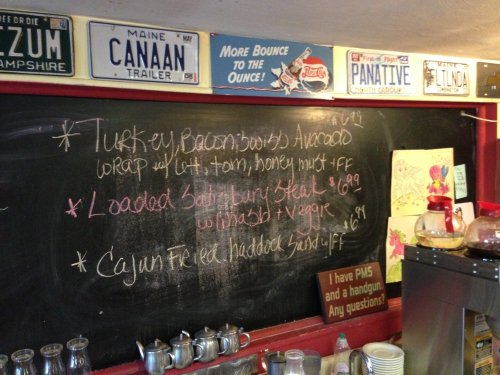 EE OR DIE
EZUM
MPSHIRE
MAINE
MAY
CANAAN
TRAILER
MORE BOUNCE
TO THE
OUNCE!
First in Flight
PANATIVE
NORTH CAROLINA
MAINE
LTLNDA
* Turkey, Bacon, Swiss Avocado $6.99
wrap w/ lett, tom, honey must + FF
* Loaded Salisbury Steak $6.99
+ Veggie
* Cajun Fried haddock Sand w/ FF $6.99
I have PMS
and a handgun.
Any questions?